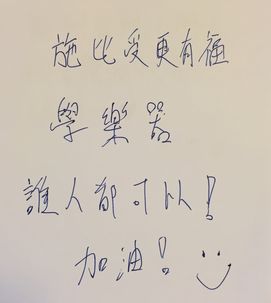 施比受更有福
學樂器
誰人都可以！
加油！